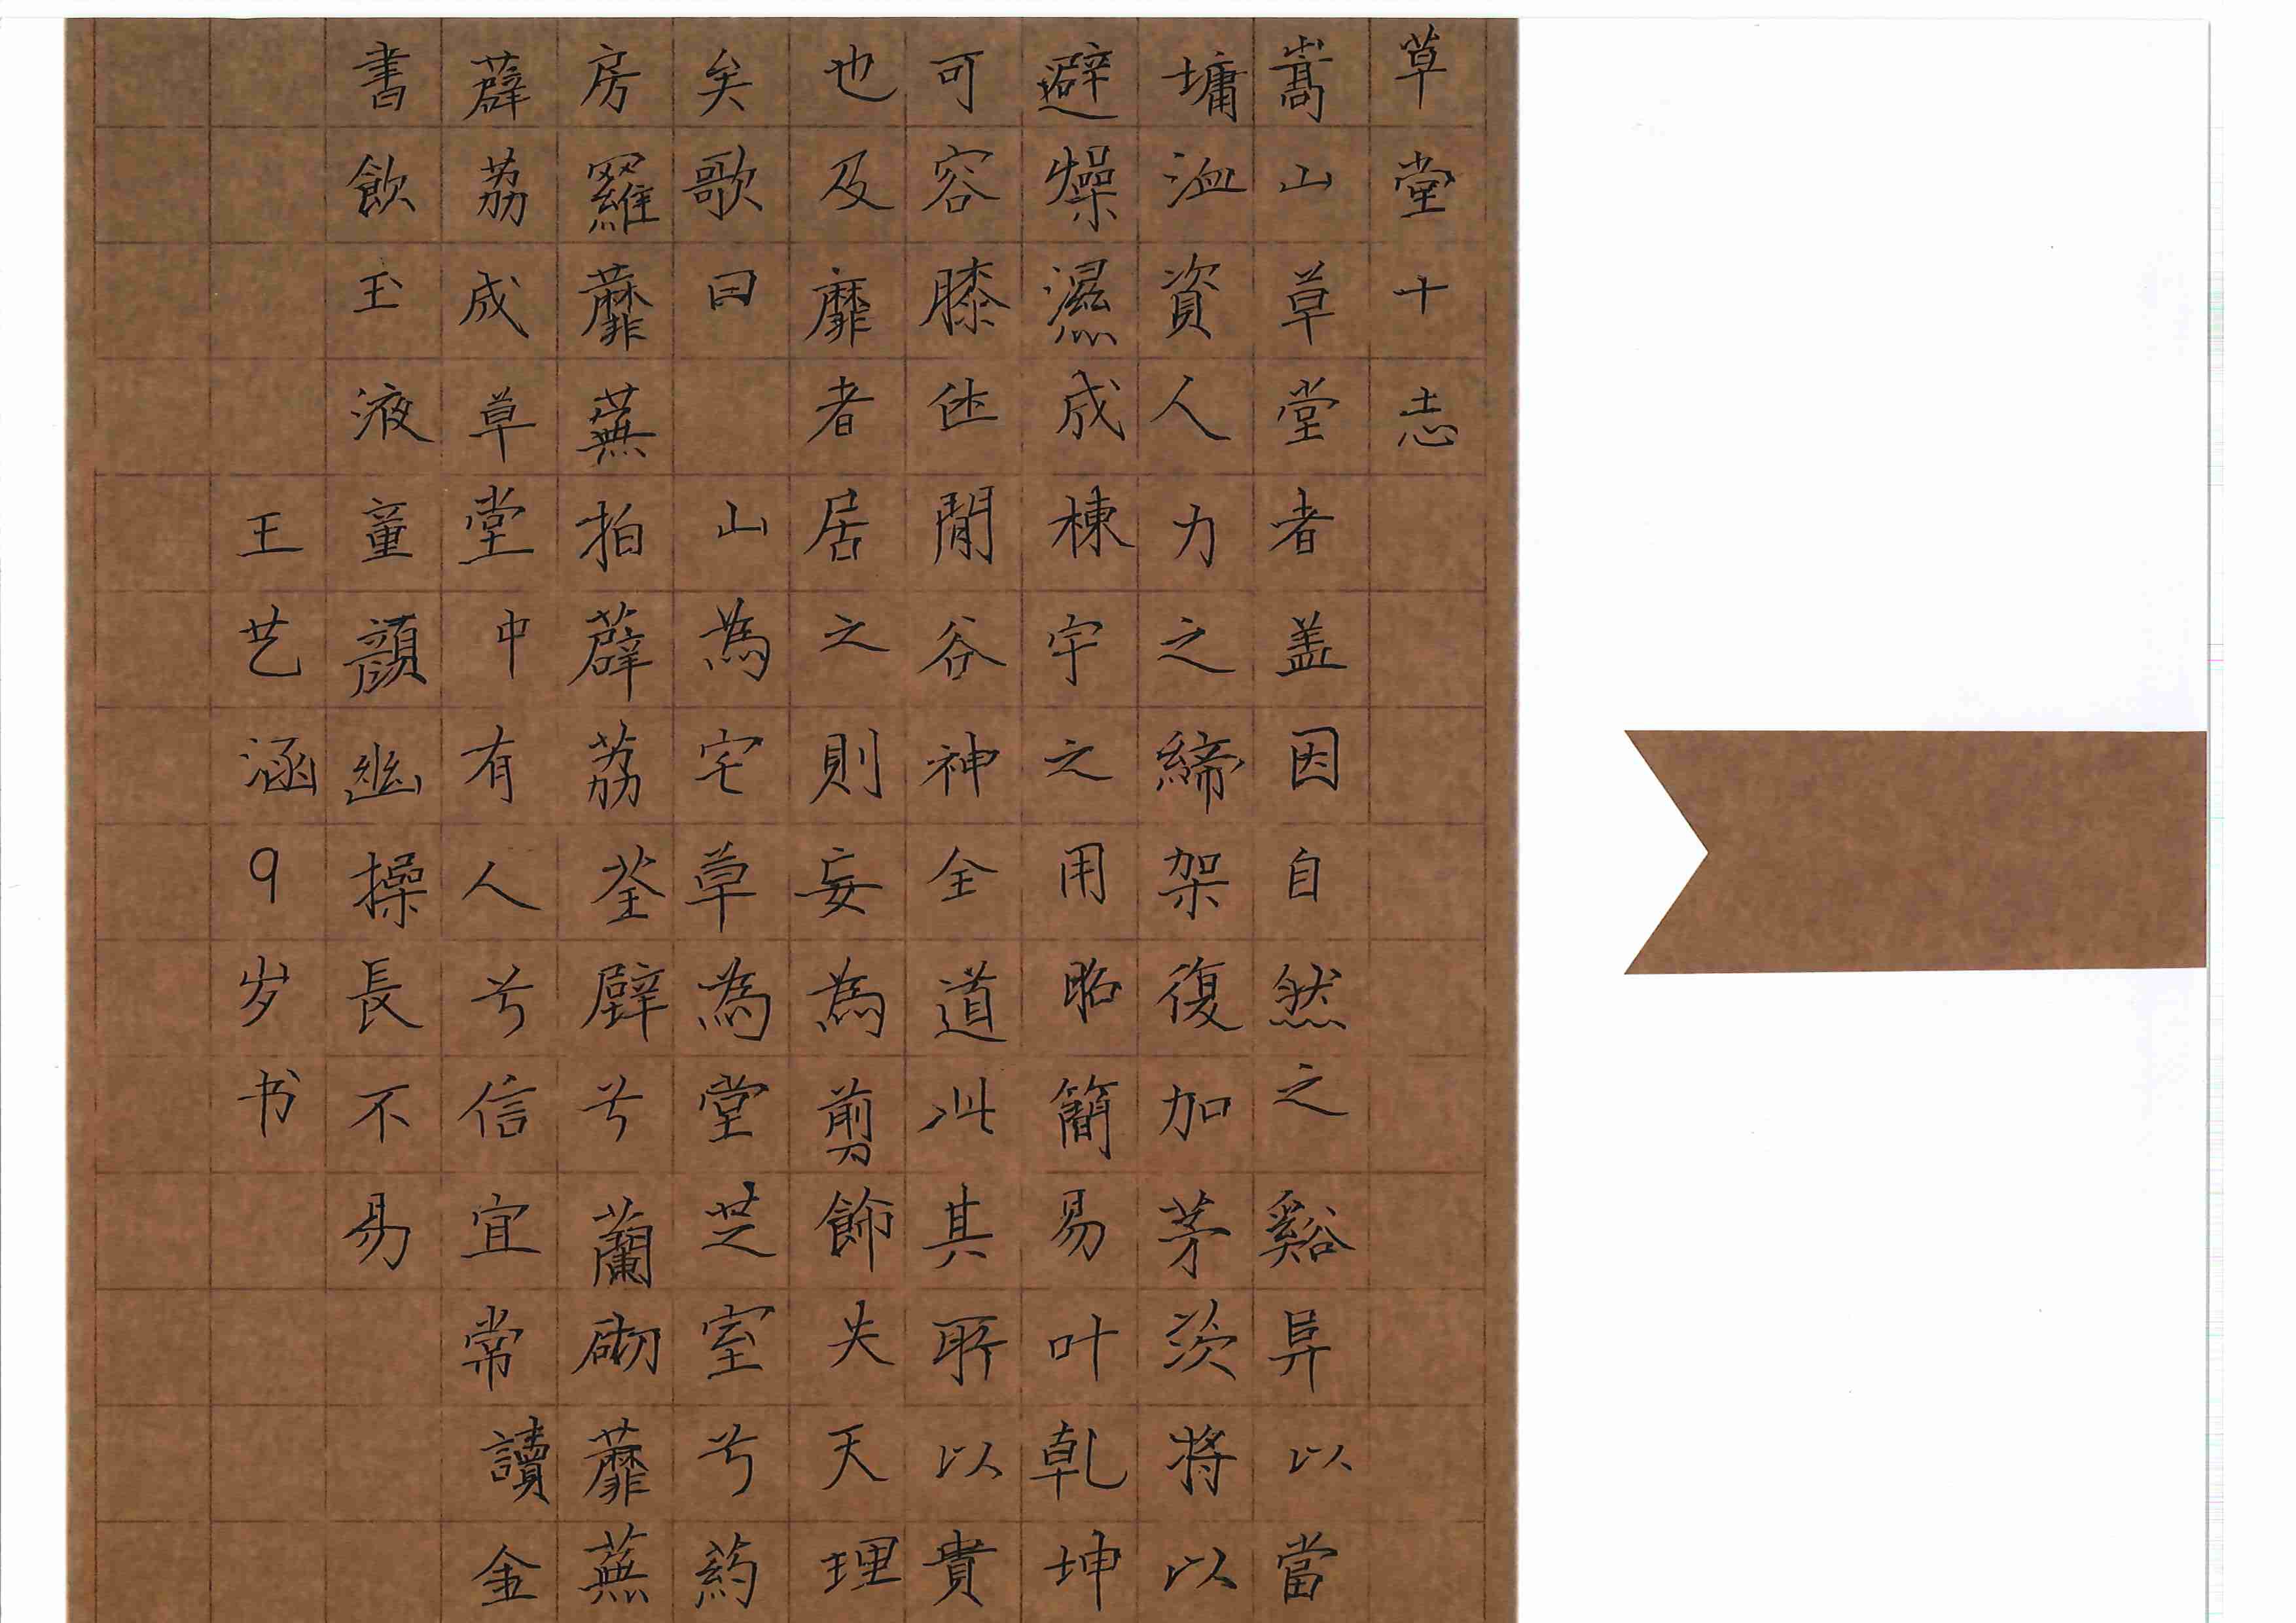 草堂十志
嵩山草堂者盖因自然之谿阜以當
墉洫資人力之締架復加茅茨将以
避燥濕成棟宇之用昭簡易叶乾坤
可容膝休閒谷神全道此其所以貴
也及靡者居之則妄為剪飾失天理
矣歌曰山為宅草為堂芝室兮葯
房羅蘼蕪拍薜荔荃壁兮蘭砌蘼蕪
薜荔成草堂中有人兮信宜常讀金
書飲玉液童顔幽操長不易
王艺涵9岁书